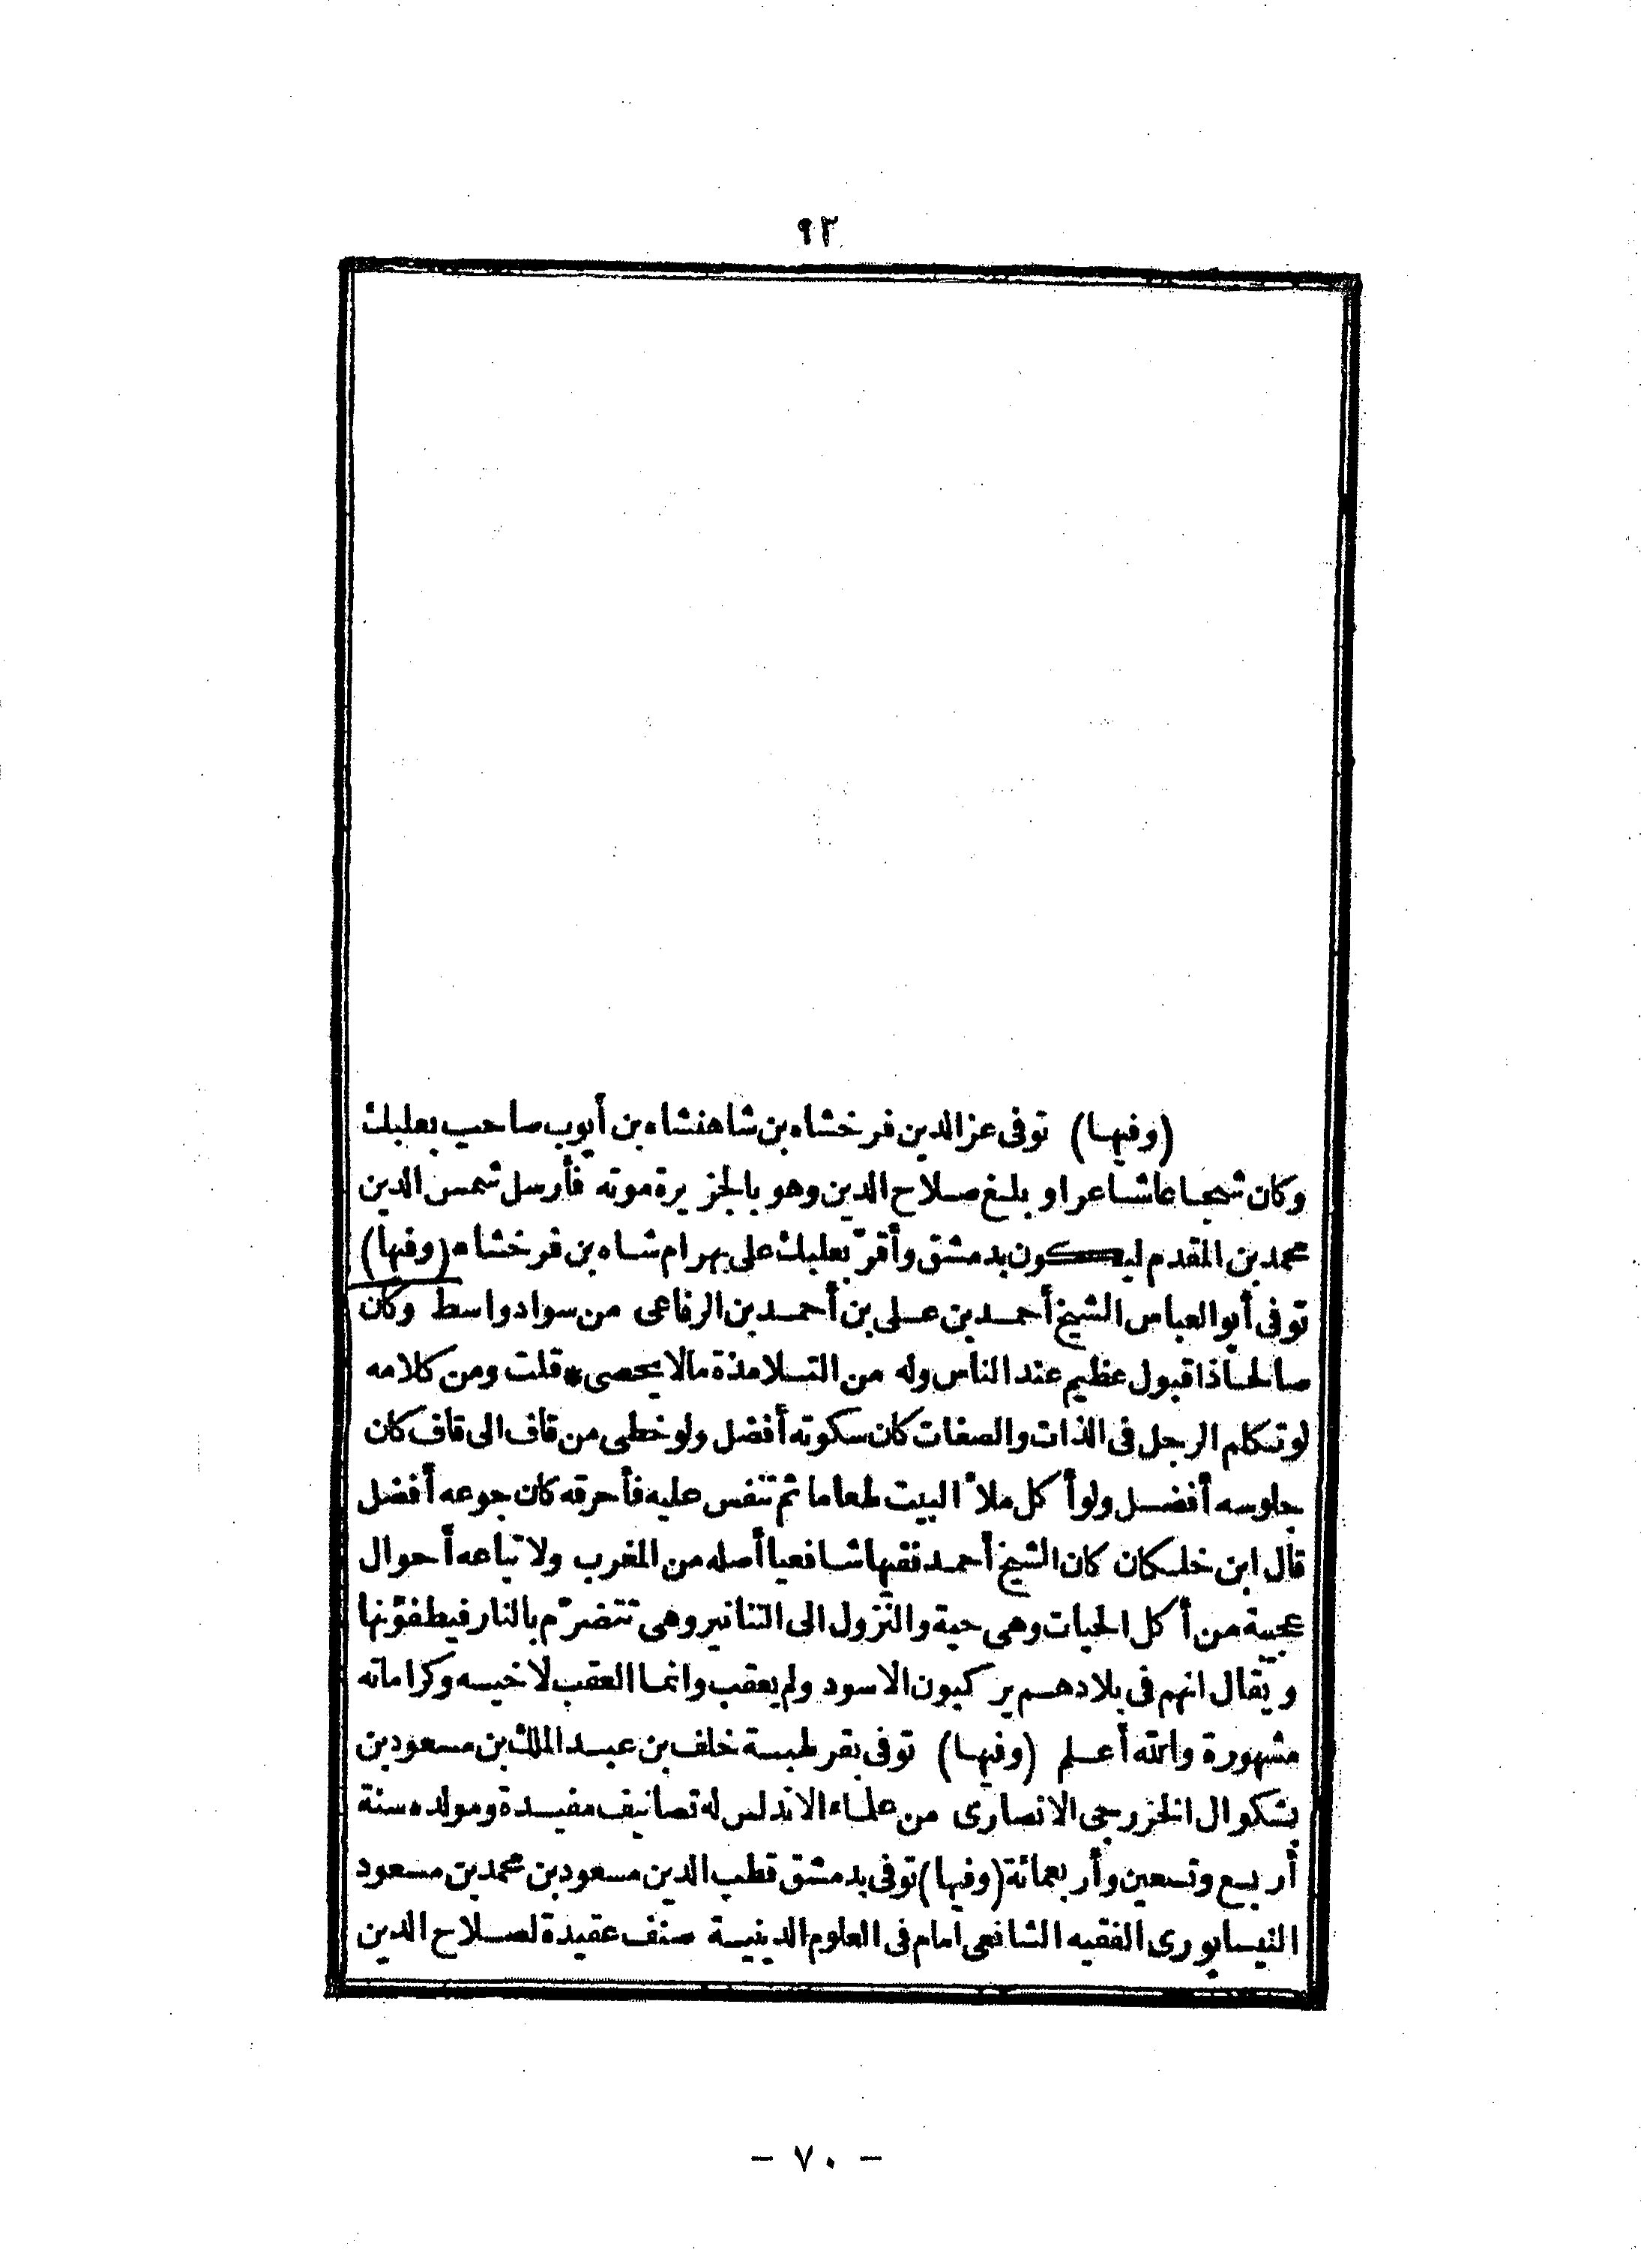 ٩٢
(وفيها) توفى عز الدين فرخشاه بن شاهنشاه بن أيوب صاحب بعلبك
وكان شجاعا شاعرا وبلغ صلاح الدين وهو بالجزيرة موته فأرسل شمس الدين
محمد بن المقدم ليكون بدمشق وأقرّ بعلبك على بهرام شاه بن فرخشاه (وفيها)
توفى أبو العباس الشيخ أحمد بن على بن أحمد بن الرفاعى من سواد واسط وكان
صالحا ذا قبول عظيم عند الناس وله من التلامذة مالا يحصى * قلت ومن كلامه
لو تكلم الرجل فى الذات والصفات كان سكوته أفضل ولو خطى من قاف الى قاف كان
جلوسه أفضل ولو أكل ملأ البيت طعاما ثم تنفس عليه فأحرقه كان جوعه أفضل
قال ابن خلكان كان الشيخ أحمد فقيها شافعيا أصله من المغرب ولاتباعه أحوال
عجيبة من أكل الحيات وهى حية والنزول الى التنانير وهى تتضرّم بالنار فيطفؤنها
ويقال انهم فى بلادهم يركبون الاسود ولم يعقب وانما العقب لاخيه وكراماته
مشهورة والله أعلم (وفيها) توفى بقرطبة خلف بن عبد الملك بن مسعود بن
بشكوال الخزرجى الانصارى من علماء الاندلس له تصانيف مفيدة ومولده سنة
أربع وتسعين وأربعمائة (وفيها) توفى بدمشق قطب الدين مسعود بن محمد بن مسعود
النيسابورى الفقيه الشافعى امام فى العلوم الدينية صنف عقيدة لصلاح الدين
- ٧٠ -